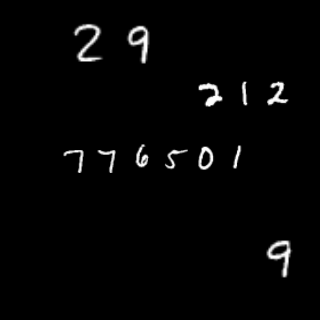 29
212
776501
9